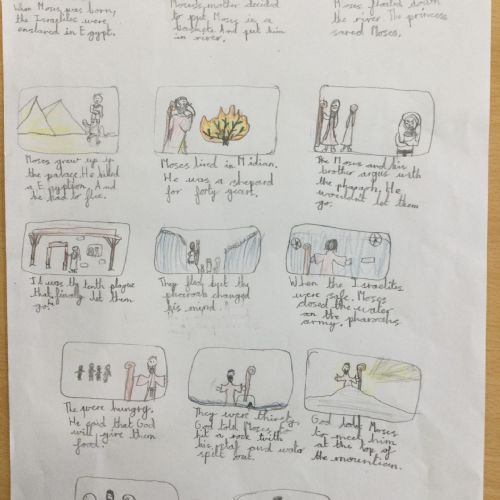 When Moses was born,
the Israelites were
enslaved in Egypt.
Moses's mother decided
to put Moses in a
basket. And put him
in river.
Moses floated down
the river. The princess
saved Moses.
Moses grew up in
the palace. He killed
a Egyption. And
he had to flee.
Moses lived in Midian.
He was a shepard
for forty years.
The Moses and his
brother argus with
the pharaph. He
wouldn't let them
go.
It was the tenth plague
that finally let them
go.
They fled but the
pharoah changed
his mind.
When the Israelites
were safe. Moses
closed the water
on the pharoahs
army.
The were hungry.
He said that God
will give them
food.
They were thirsty
God told Moses to
hit a rock with
his staf and water
spilt out.
God told Moses
to meet him
at the top of
the mountian.